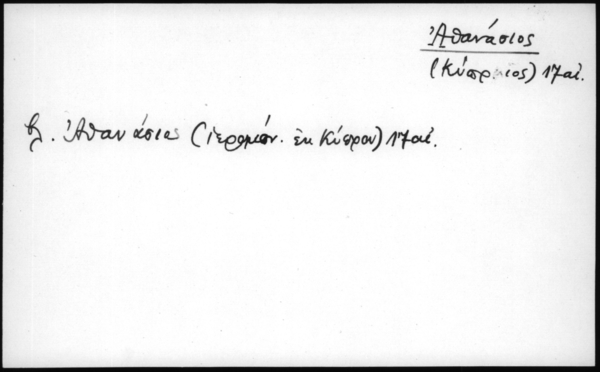 Ἀθανάσιος
(Κύπριος) 17 αἰ.
βλ. Ἀθανάσιος (ἱερομόν. ἐκ Κύπρου) 17 αἰ.